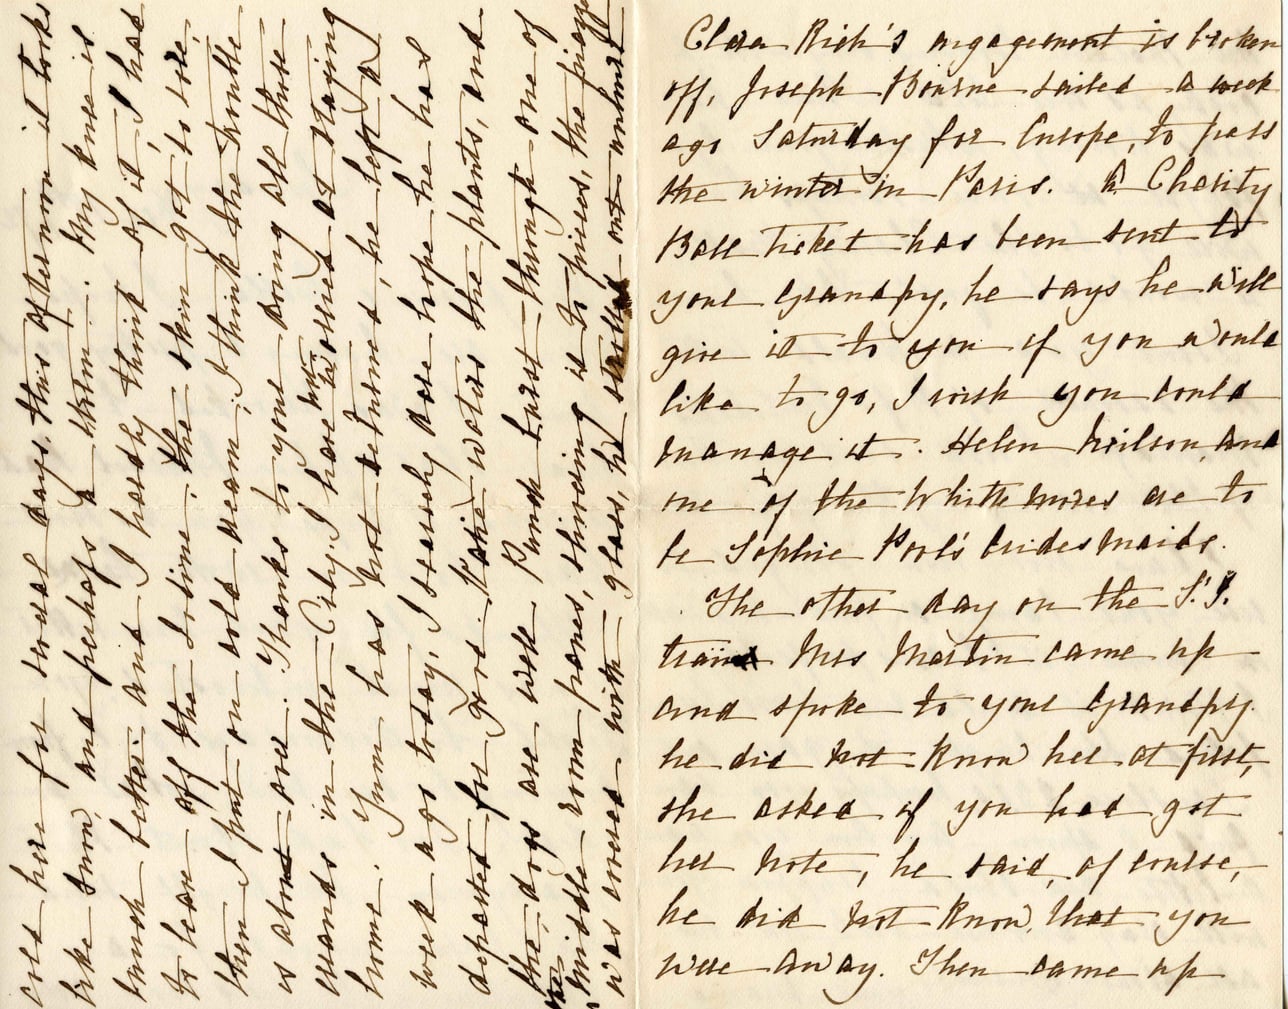 cold here for several days, this afternoon it looks
like snow, and perhaps a storm. My knee is
much better and I hardly think of it, I had
to leave off the Iodine, the skin got so sore,
then I put on cold cream, I think the trouble
is about over. Thanks to your doing all those
errands in the City, I have not worried as staying
home. Tom has not returned, he left a
week ago today, I scarcely dare hope he has
departed for good. Katie waters the plants, and
the dogs are well. Punch burst through one of
the middle room panes, shivering it to pieces, the piazza
was covered with glass, he walked out unhurt
Clara Rich's engagement is broken
off, Joseph Bourne sailed a week
ago Saturday for Europe, to pass
the winter in Paris. A Charity
Ball ticket has been sent to
your Grandpy, he says he will
give it to you if you would
like to go, I wish you could
manage it. Helen Neilson, and
one of the Whitemores are to
be Sophie Post's bridesmaids.
The other day on the S.I.
train Mrs Martin came up
and spoke to your Grandpy.
he did not know her at first,
she asked if you had got
her note, he said, of course,
he did not know, that you
were away. Then came up